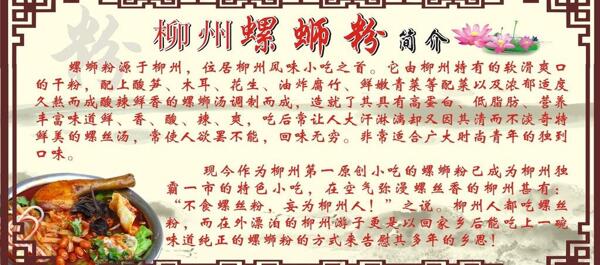 粉
柳州螺蛳粉简介
螺蛳粉源于柳州，位居柳州风味小吃之首。它由柳州特有的软滑爽口
的干粉，配上酸笋、木耳、花生、油炸腐竹、鲜嫩青菜等配菜以及浓郁适度
久熬而成酸辣鲜香的螺蛳汤调制而成，造就了其具有高蛋白、低脂肪、营养
丰富味道鲜、香、酸、辣、爽，吃后常让人大汗淋漓却又因其清而不淡奇特
鲜美的螺丝汤，常使人欲罢不能，回味无穷。非常适合广大时尚青年的独到
口味。
现今作为柳州第一原创小吃的螺蛳粉已成为柳州独
霸一市的特色小吃，在空气弥漫螺丝香的柳州甚有：
“不食螺丝粉，妄为柳州人！”之说。柳州人都吃螺丝
粉，而在外漂泊的柳州游子更是以回家乡后能吃上一碗
味道纯正的螺蛳粉的方式来告慰其多年的乡思！